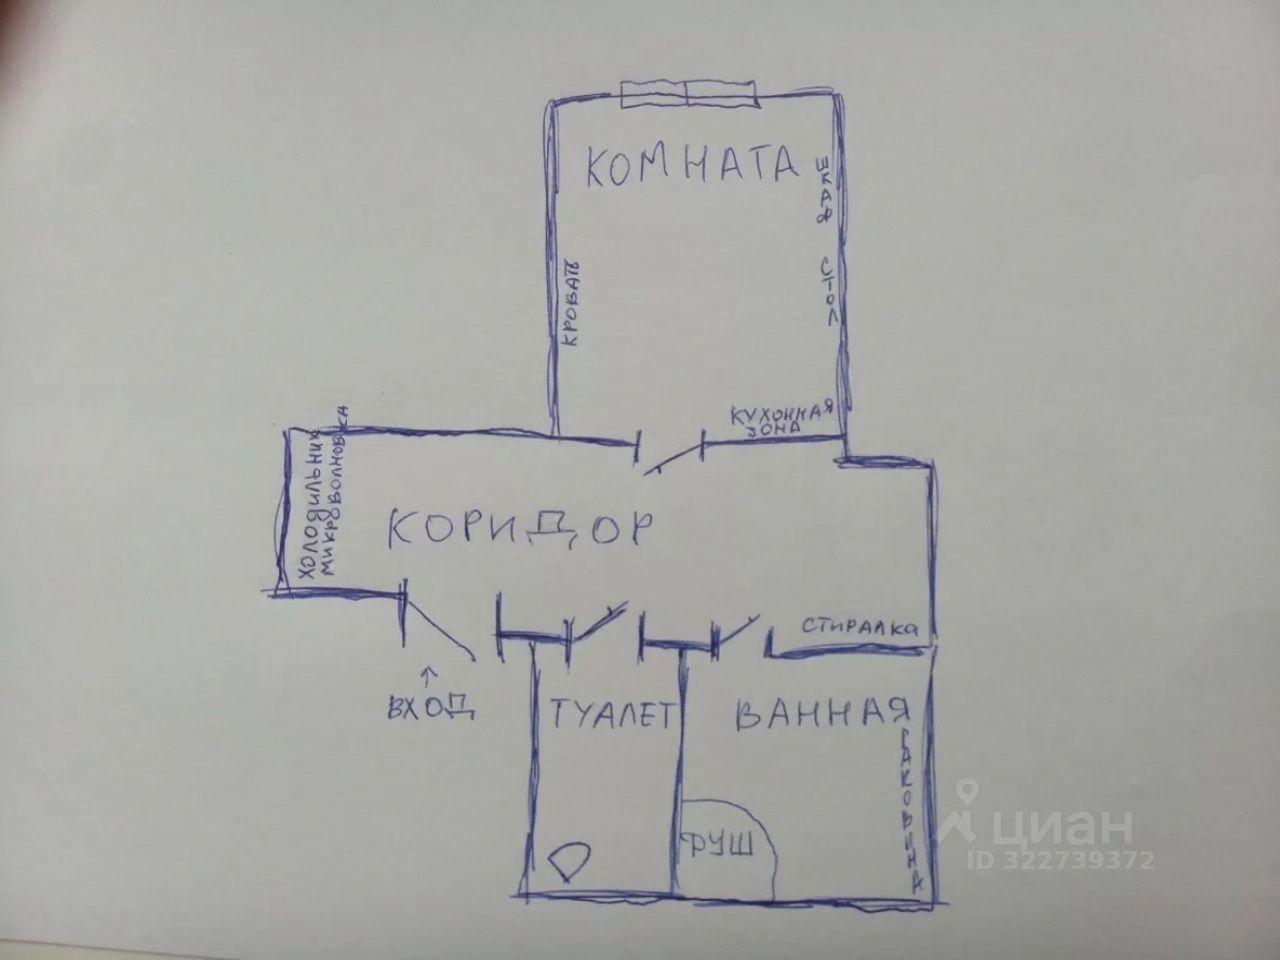 КОМНАТА
ШКАФ
СТОЛ
КРОВАТЬ
КУХОННАЯ
ЗОНА
ХОЛОДИЛЬНИК
МИКРОВОЛНОВКА
КОРИДОР
СТИРАЛКА
ВХОД
ТУАЛЕТ
ВАННАЯ
РАКОВИНА
ДУШ
циан
ID 322739372